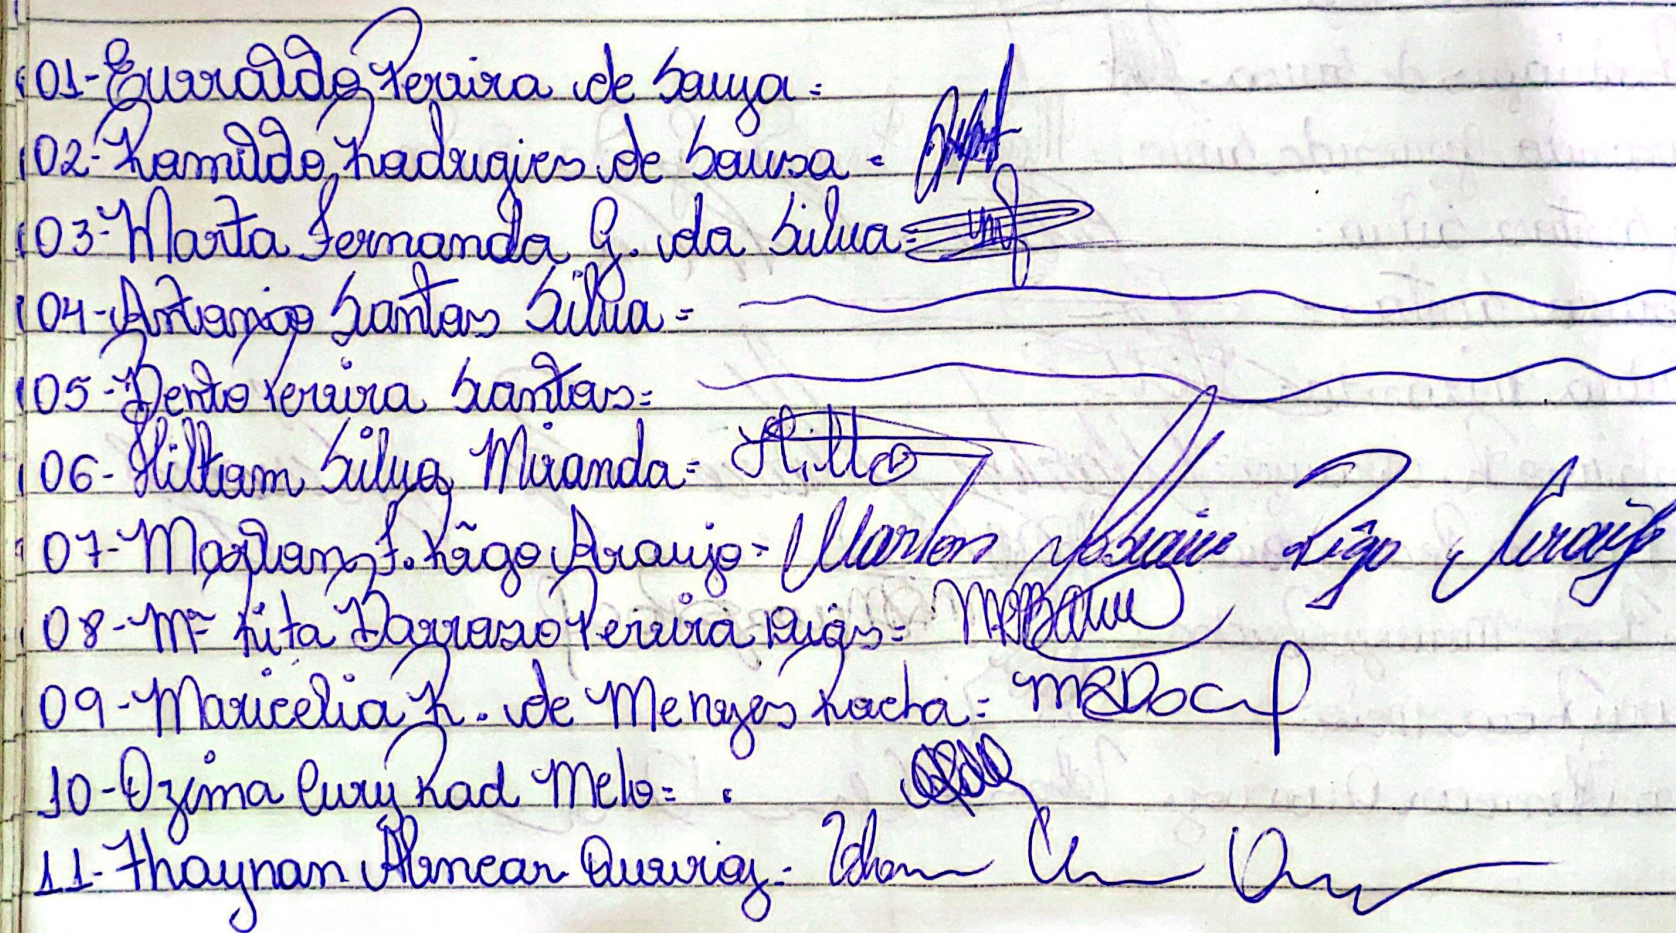 01-Eurialdo Pereira de Souza=
02-Romildo Rodrigues de Sousa=
03-Marta Fernanda G. da Silva=
04-Antonio Santos Silva=
05-Bento Pereira Santos=
06-Hiltom Silva Miranda= Hilto
07-Marlon F. Rêgo Araujo= Marlon Rêgo Araujo
08-Mª Rita Barroso Pereira=
09-Maricelia R. de Menezes Rocha=
10-Ozima Cury Rad Melo=
11-Thaynan Alencar Queiroz-